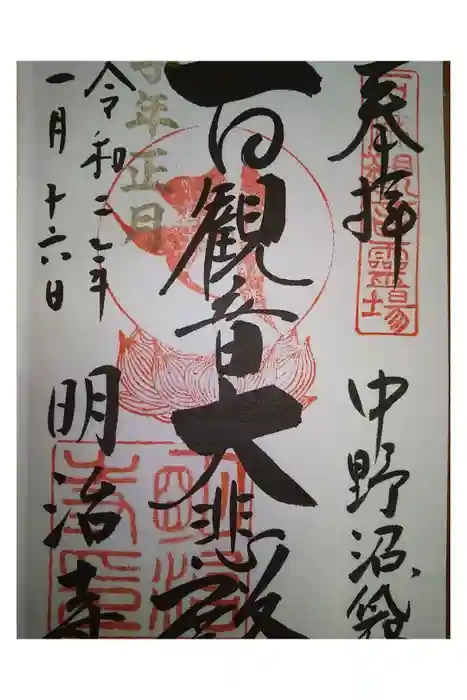 奉拝
百観音霊場
中野沼袋
百観音大悲殿
子年正月
令和二年
一月十六日
明治寺